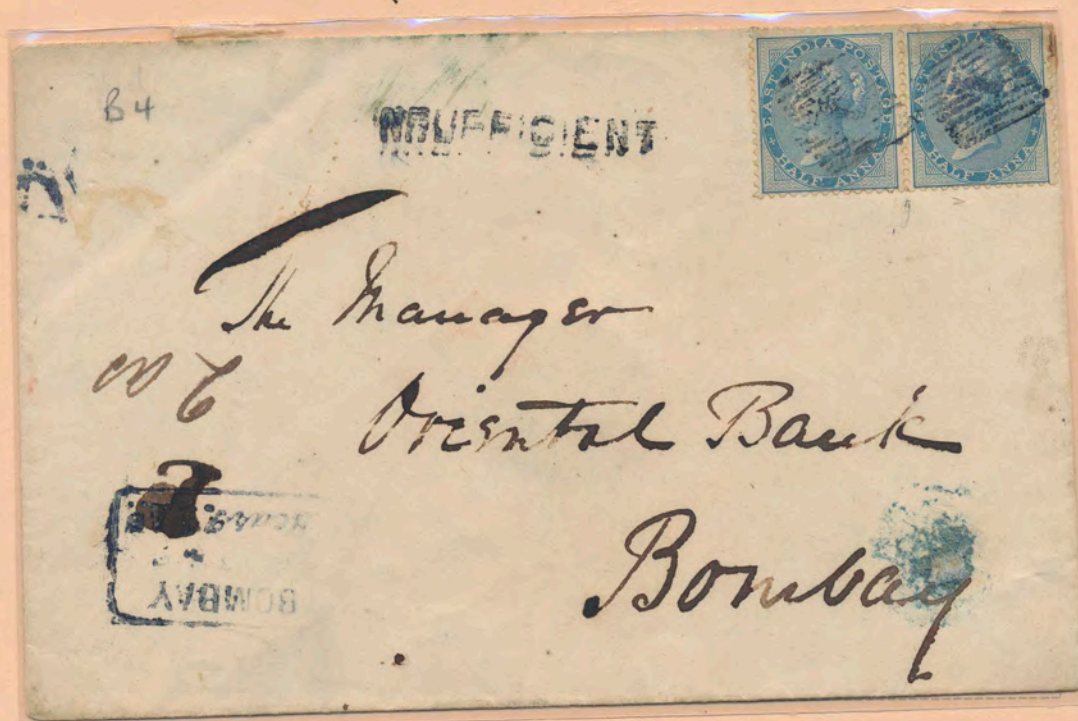 B4
INSUFFICIENT
EAST INDIA POSTAGE
HALF ANNA
EAST INDIA POSTAGE
HALF ANNA
The Manager
Oriental Bank
Bombay
BOMBAY